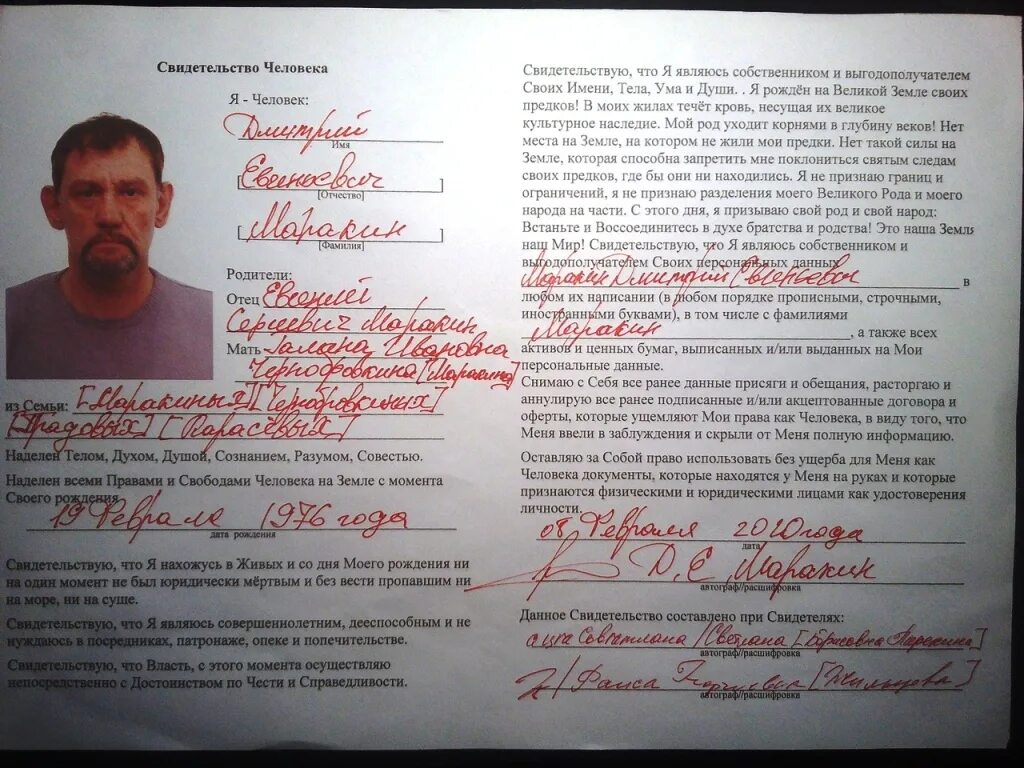 Свидетельство Человека
Я - Человек:
Дмитрий
Имя
[Евгеньевич]
[Отчество]
[Маракин]
[Фамилия]
Родители:
Отец Евгений
Сергеевич Маракин
Мать Ивановна
[Маракина]
из Семьи: [Маракиных]
Наделен Телом, Духом, Душой, Сознанием, Разумом, Совестью.
Наделен всеми Правами и Свободами Человека на Земле с момента
Своего рождения
19 Февраля 1976 года
дата рождения
Свидетельствую, что Я нахожусь в Живых и со дня Моего рождения ни
на один момент не был юридически мёртвым и без вести пропавшим ни
на море, ни на суше.
Свидетельствую, что Я являюсь совершеннолетним, дееспособным и не
нуждаюсь в посредниках, патронаже, опеке и попечительстве.
Свидетельствую, что Власть, с этого момента осуществляю
непосредственно с Достоинством по Чести и Справедливости.
Свидетельствую, что Я являюсь собственником и выгодополучателем
Своих Имени, Тела, Ума и Души. . Я рождён на Великой Земле своих
предков! В моих жилах течёт кровь, несущая их великое
культурное наследие. Мой род уходит корнями в глубину веков! Нет
места на Земле, на котором не жили мои предки. Нет такой силы на
Земле, которая способна запретить мне поклониться святым следам
своих предков, где бы они ни находились. Я не признаю границ и
ограничений, я не признаю разделения моего Великого Рода и моего
народа на части. С этого дня, я призываю свой род и свой народ:
Встаньте и Воссоединитесь в духе братства и родства! Это наша Земля
наш Мир! Свидетельствую, что Я являюсь собственником и
выгодополучателем Своих персональных данных
Маракин Дмитрий Евгеньевич в
любом их написании (в любом порядке прописными, строчными,
иностранными буквами), в том числе с фамилиями
Маракин , а также всех
активов и ценных бумаг, выписанных и/или выданных на Мои
персональные данные.
Снимаю с Себя все ранее данные присяги и обещания, расторгаю и
аннулирую все ранее подписанные и/или акцептованные договора и
оферты, которые ущемляют Мои права как Человека, в виду того, что
Меня ввели в заблуждения и скрыли от Меня полную информацию.
Оставляю за Собой право использовать без ущерба для Меня как
Человека документы, которые находятся у Меня на руках и которые
признаются физическими и юридическими лицами как удостоверения
личности.
08 Февраля 2020 года
дата
Д. Е. Маракин
автограф//расшифровка
Данное Свидетельство составлено при Свидетелях:
Светлана [Борисовна
автограф//расшифровка
Раиса
автограф//расшифровка